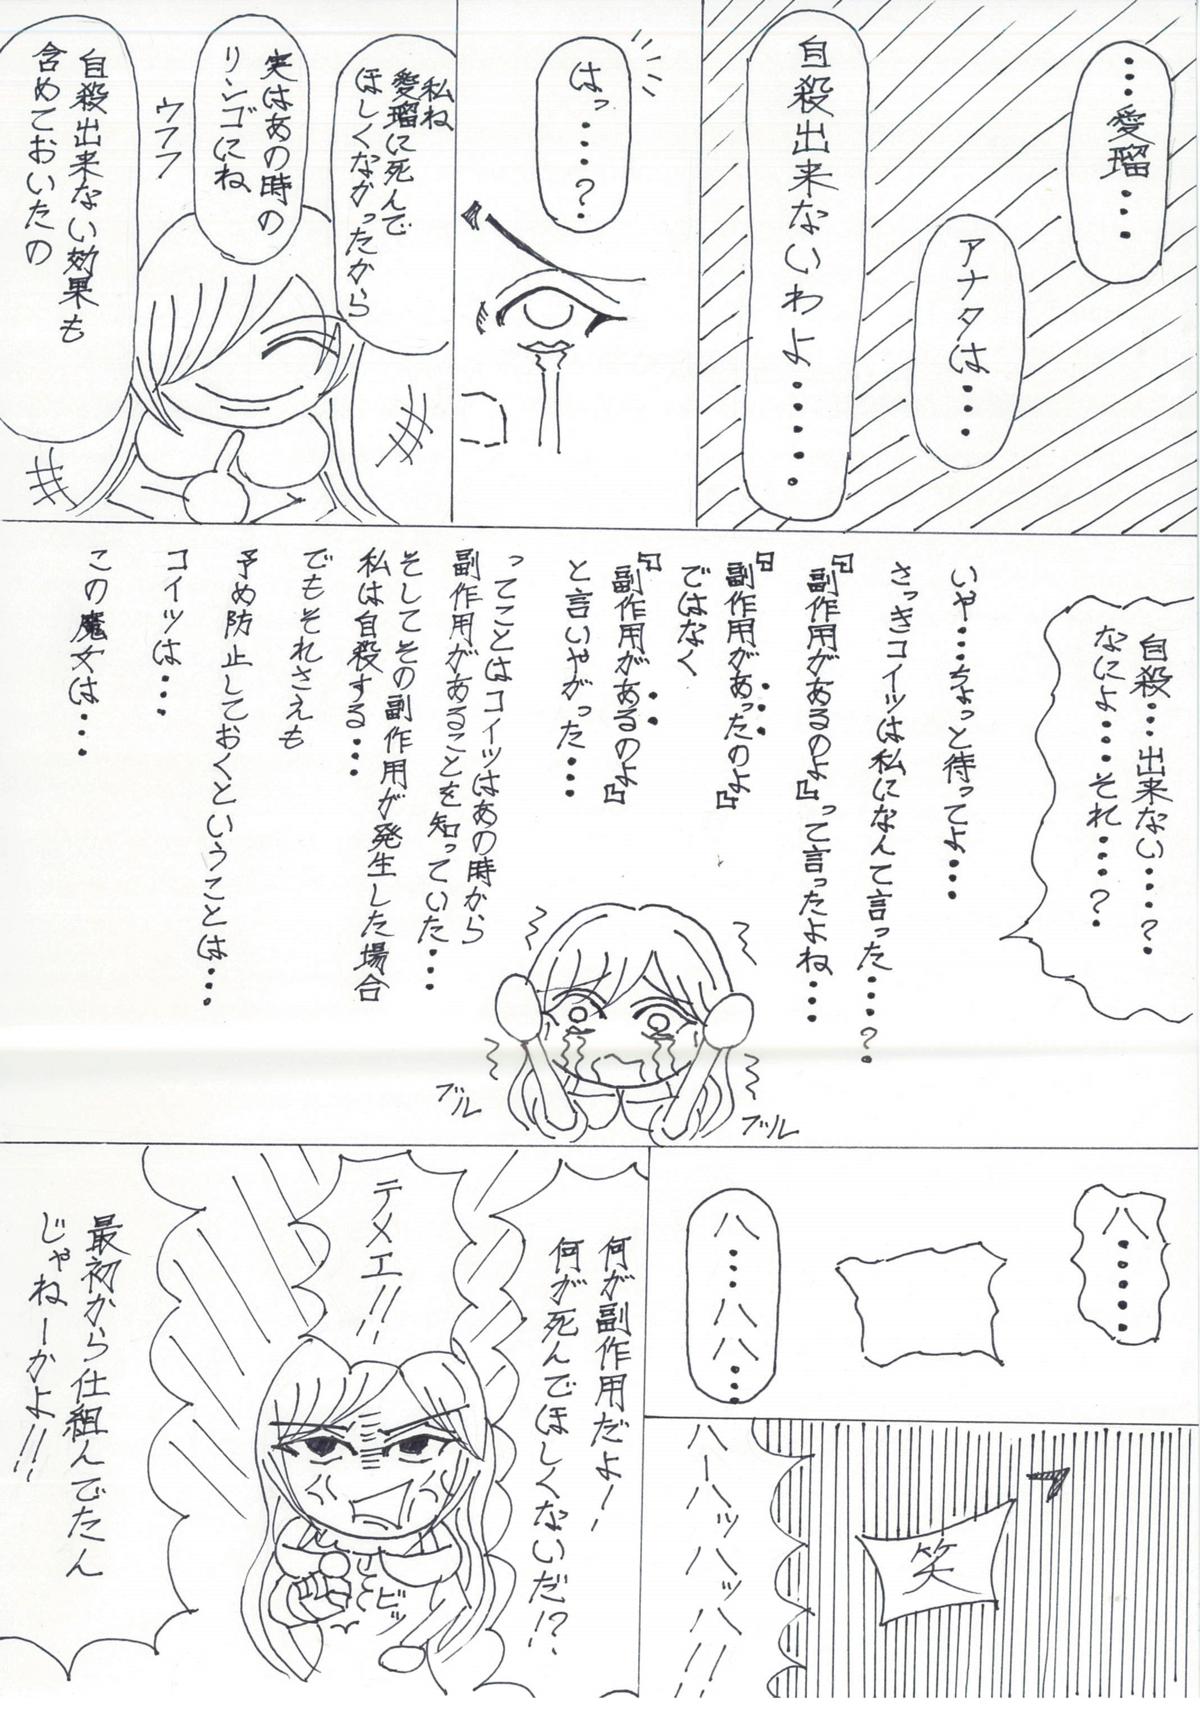 ・・・愛瑠・・・・
アナタは・・・・
自殺出来ないわよ・・・・・・
はっ・・・・?
私ね
愛瑠に死んで
ほしくなかったから
実はあの時の
リンゴにね
ウフフ
自殺出来ない効果も
含めておいたの
自殺・・・出来ない・・・・?
なによ・・・それ・・・・?
いや・・・ちょっと待ってよ・・・・
さっきコイツは私になんて言った・・・・?
『副作用があるのよ』って言ったよね・・・・
『副作用があったのよ』
ではなく
『副作用があるのよ』
と言いやがった・・・・
ってことはコイツはあの時から
副作用があることを知っていた・・・・
そしてその副作用が発生した場合
私は自殺する・・・・
でもそれさえも
予め防止しておくということは・・・・
コイツは・・・・
この魔女は・・・・
ブル
ブル
ハ・・・・・・
ハ・・・ハハ・・・
笑
ハーハッハッハ!!
何が副作用だよ!
何が死んでほしくないだ!?
テメエ!!
ビッ
最初から仕組んでたん
じゃねーかよ!!